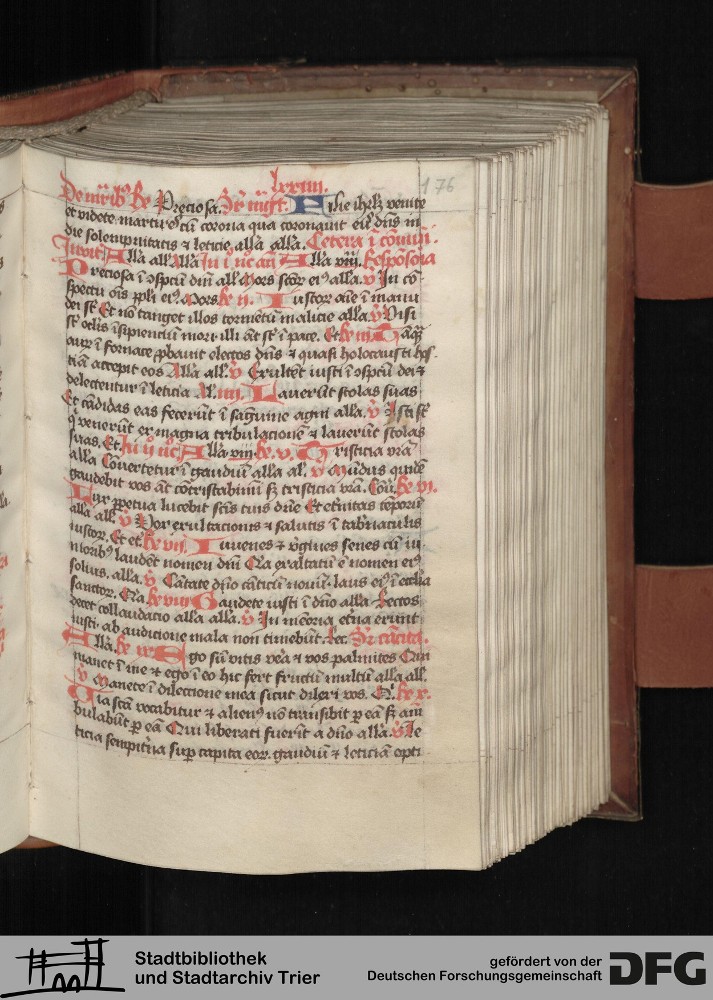 lxxiiii.
176
Preciosa. Filie ihrlm venite
et videte martires cū corona qua coronauit eūs dn̄s in
die solempnitatis & leticie, alla alla. Cetera ī cōmūi.
Inuit. Alla all Alla In i noc añ Alla viii. Responsoria
Preciosa ī ɔspctū dn̄i all. Mors scōr ei9 alla. V In cō-
spectu ois ppli ei9 Mors. Re ii. Iustor aīe ī manu
dei st̄ Et nō tanget illos tormētū malicie alla. V Visi
st̄ oclīs īsipienciū mori illi āt st̄ ī pace. Et Re iii Tāq̄
aur̄ ī fornace pbauit electos dn̄s & quasi holocausti hos-
tiā accepit eos Alla all. V Exultēt iusti ī ɔspctū dei &
delectentur ī leticia Al. iiii. Lauerūt stolas suas
Et cādidas eas fecerūt ī sāguine agni alla. V Isti st̄
q̇ venerūt ex magna tribulacione & lauerūt stolas
suas. Et. In ii noc Alla viii. Re. v. Tristicia vrā
alla Cōuertetur ī gaudiū alla al. V Mūdus quidē
gaudebit vos āt cōtristabimī sz tristicia vrā. Cōu. Re vi.
Lux ppetua lucebit scīs tuis dn̄e Et etnitas tēporū
alla all. V Vox exultacionis & salutis ī tabnaculis
iustor. Et et. Re vii. Iuuenes & v̄gines senes cū iu-
niorib9 laudēt nomen dn̄i Q̄a exaltatū ē nomen ei9
solius. alla. V Cātate dn̄o cāticū nouū. laus ei9 ī ecclīa
sanctor. Q̄a Re viii Gaudete iusti ī dn̄o alla Rectos
decet collaudacio alla alla. V In mēoria etna erunt
iusti. ab audicione mala non timebūt. Rec.
Alla. Re ix Ego sū vitis vēa & vos palmites Qui
manet ī me & ego ī eo hic fert fructū multū alla all.
V Manete ī dileccione mea sicut dilexi vos. Q. Re x.
Uia scā vocabitur & alien9 nō transibit p eā sz am-
bulabūt p eā Qui liberati fuerīt a dn̄o alla. V Le-
ticia sempitna sup capita eor. gaudiū & leticiā opti
Stadtbibliothek
und Stadtarchiv Trier
gefördert von der
Deutschen Forschungsgemeinschaft
DFG